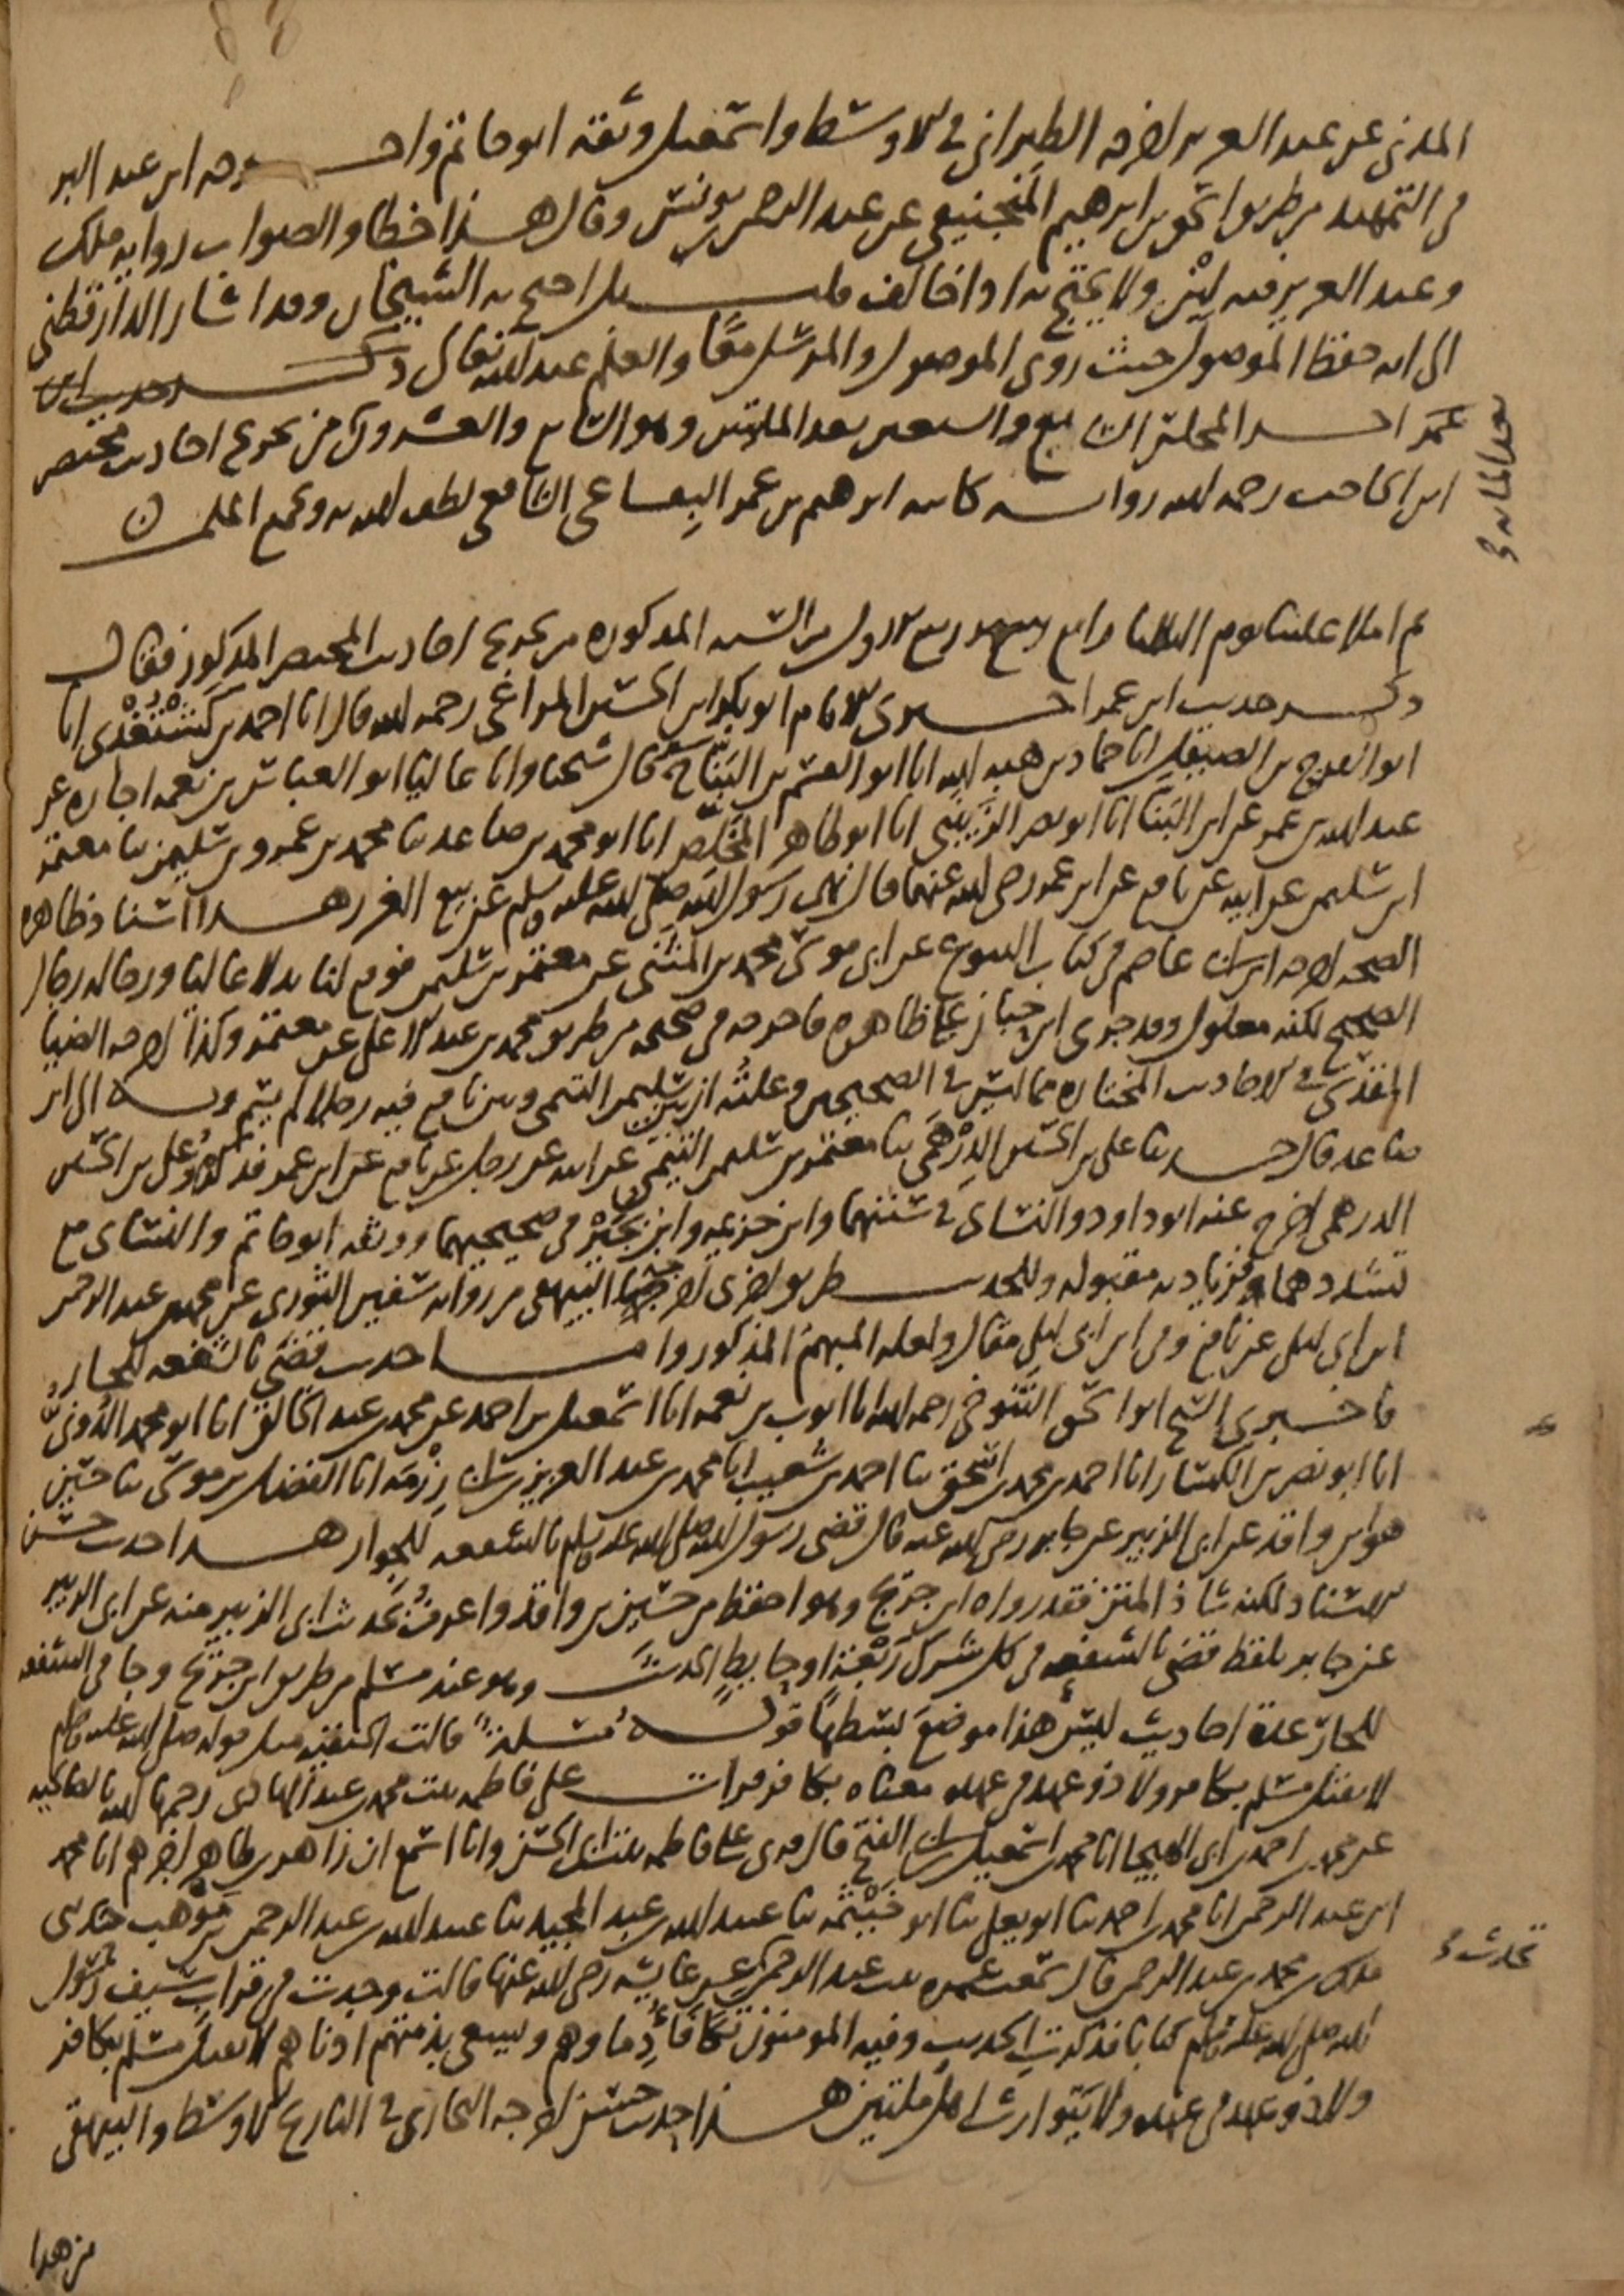 المدني عن عبد العزيز اخرجه الطبراني في الاوسط واسمعيل وثقه ابو حاتم واخرجه ابن عبد البر
في التمهيد من طريق اسحق بن ابرهيم المنجنيقي عن عبد الرحمن بن يونس وقال هذا خطا والصواب رواية ملك
وعبد العزيز فيه لين ولا يحتج به اذا خالف قلت بل احتج به الشيخان وقد اشار الدارقطني
الى انه حفظ الموصول حيث روى الموصول والمرسل معا والعلم عند الله تعالى ذكر حديث ابن
عمر اخر المجلس السابع والسبعين بعد الماتين وهو التاسع والعشرون من تخريج احاديث مختصر
ابن الحاجب رحمه الله رواية كاتبه ابرهيم بن عمر البقاعي الشافعي لطف الله به وبجميع المسلمين
بعد المايه
ثم املا علينا يوم الثلاثا رابع شهر ربيع الاول من السنه المذكوره من تخريج احاديث المختصر المذكور فقال
ذكر حديث ابن عمر اخبرني الامام ابو بكر ابن الحسين المراغي رحمه الله قال انا احمد بن كشتغدي انا
ابو الفرج بن الصيقل انا حماد بن هبه الله انا ابو القسم بن البنا ح قال شيخنا وانا عاليا ابو العباس بن نعمه اجازه عن
عبد الله بن عمر عن ابن البنا انا ابو نصر الزينبي انا ابو طاهر المخلص انا ابو محمد بن صاعد ثنا محمد بن عمرو بن سليمن ثنا معتمر
ابن سليمن عن ابيه عن نافع عن ابن عمر رضي الله عنهما قال نهى رسول الله صلى الله عليه وسلم عن بيع الغرر هذا اسناد ظاهره
الصحه اخرجه ابن ابي عاصم في كتاب البيوع عن ابي موسى محمد بن المثنى عن معتمر بن سليمن فوقع لنا بدلا عاليا ورجاله رجال
الصحيح لكنه معلول وقد جرى ابن حبان على ظاهره فاخرجه في صحيحه من طريق محمد بن عبد الاعلى عن معتمر وكذا اخرجه الضيا
المقدسي في الاحاديث المختاره مما ليس في الصحيحين وعلته ان بين سليمن التيمي وبين نافع فيه رجلا لم يسم وبه الى ابن
صاعد قال حدثنا علي بن الحسين الدرهمي ثنا معتمر بن سليمن التيمي عن ابيه عن رجل عن نافع عن ابن عمر فذكره وعلي بن الحسين
الدرهمي اخرج عنه ابو داود والنساي في سننهما وابن خزيمه وابن بجير في صحيحيهما ووثقه ابو حاتم والنساي مع
تشددهما فزيادته مقبوله وللحديث طريق اخرى اخرجها البيهقي من رواية سفين الثوري عن محمد بن عبد الرحمن
ابن ابي ليلى عن نافع وفي ابن ابي ليلى مقال ولعله المبهم المذكور واما حديث قضى بالشفعه للجار
فاخبرني الشيخ ابو اسحق التنوخي رحمه الله انا ايوب بن نعمه انا اسمعيل بن احمد عن محمد بن عبد الخالق انا ابو محمد الدوني
انا ابو نصر بن الكسار انا احمد بن محمد بن اسحق ثنا احمد بن شعيب انا محمد بن عبد العزيز بن ابي رزمه انا الفضل بن موسى ثنا حسين
هو ابن واقد عن ابي الزبير عن جابر رضي الله عنه قال قضى رسول الله صلى الله عليه وسلم بالشفعه للجوار هذا حديث حسن
الاسناد لكنه شاذ المتن فقد رواه ابن جريج وهو احفظ من حسين بن واقد واعرف بحديث ابي الزبير منه عن ابي الزبير
عن جابر بلفظ قضى بالشفعه في كل شرك ربعة او حايط الحديث وهو عند مسلم من طريق ابن جريج وجا في الشفعه
للجار عدة احاديث ليس هذا موضع بسطها قوله مسلة قالت الحنفيه مثل قوله صلى الله عليه وسلم
لا يقتل مسلم بكافر ولا ذو عهد في عهده معناه بكافر قرات على فاطمه بنت محمد بن عبد الهادي رحمها الله بالصالحيه
عن محمد بن احمد بن ابي الهيجا انا محمد بن اسمعيل بن ابي الفتح قال قري على فاطمه بنت ابي الحسن وانا اسمع ان زاهر بن طاهر اخبرهم انا محمد
ابن عبد الرحمن انا محمد بن احمد ثنا ابو يعلى ثنا ابو خيثمه ثنا عبيد الله بن عبد المجيد ثنا عبيد الله بن عبد الرحمن بن موهب حدثني
ملك بن محمد بن عبد الرحمن قال سمعت عمره بنت عبد الرحمن عن عايشه رضي الله عنها قالت وجدت في قراب سيف رسول
تحدث
الله صلى الله عليه وسلم كتابا فذكرت الحديث وفيه المومنون تكافا دماوهم ويسعى بذمتهم ادناهم لا يقتل مسلم بكافر
ولا ذو عهد في عهده ولا يتوارث اهل ملتين هذا حديث حسن اخرجه البخاري في التاريخ الاوسط والبيهقي
من هذا